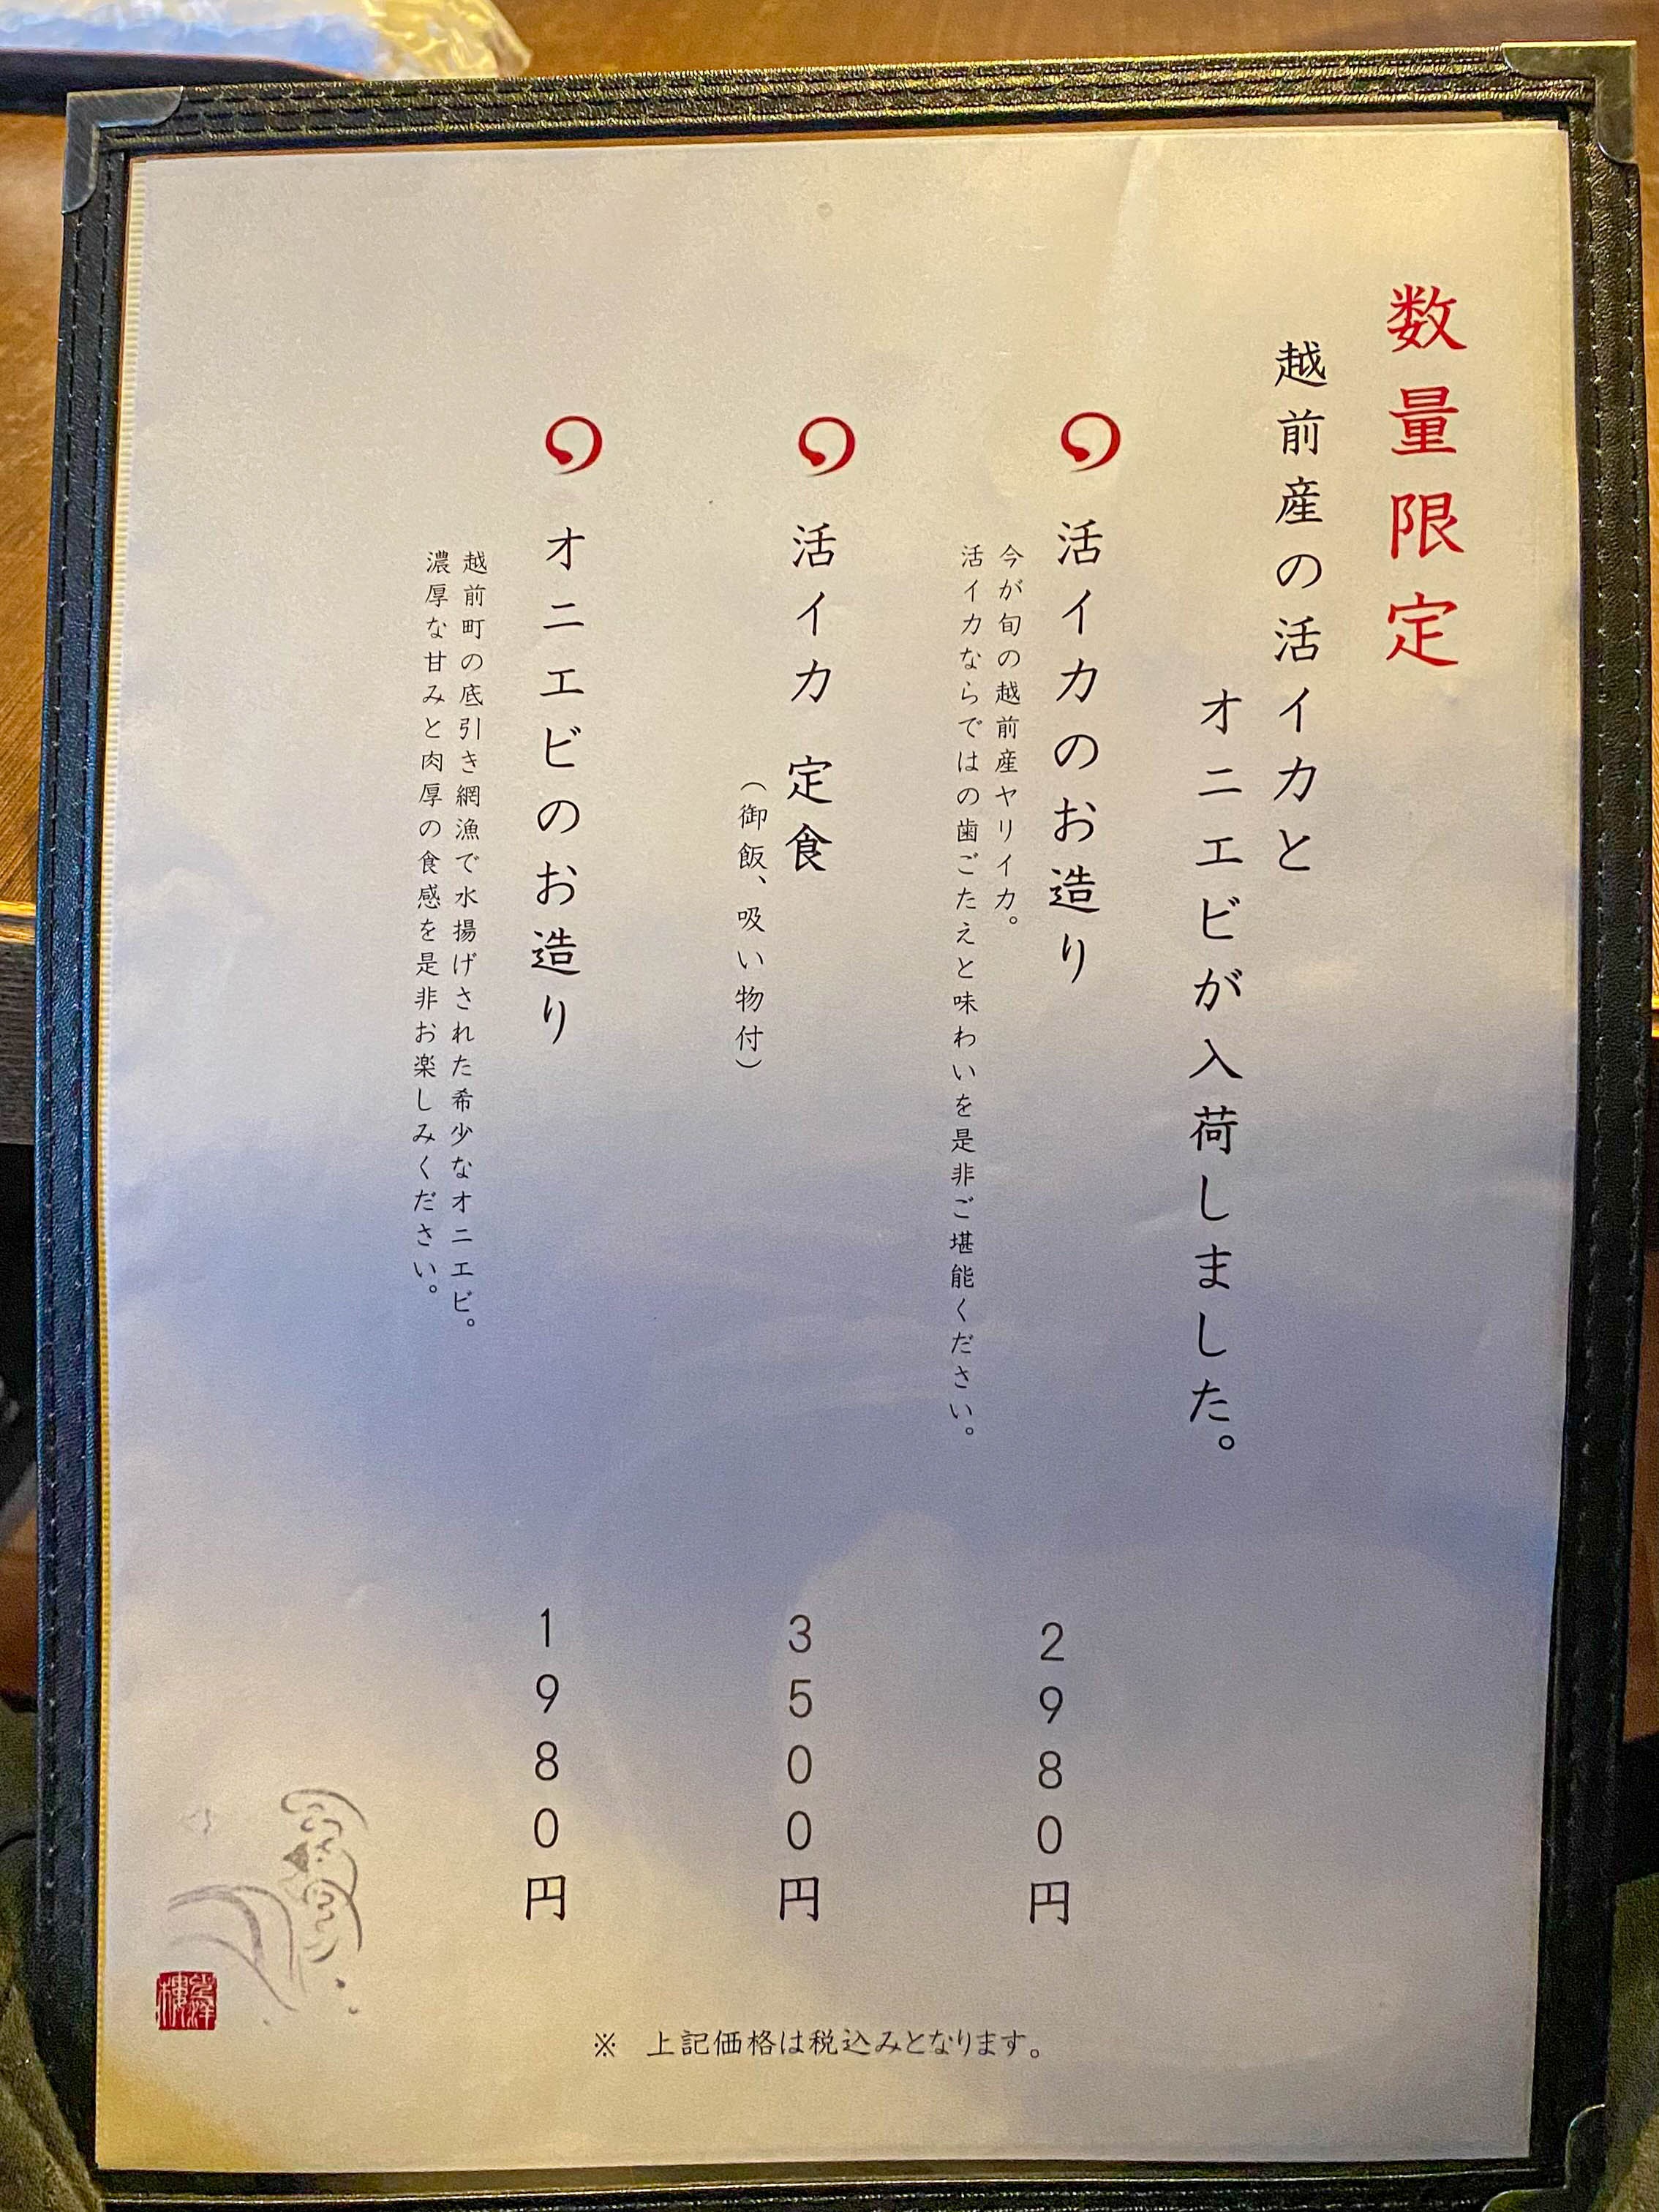 数量限定
越前産の活イカと
オニエビが入荷しました。
活イカのお造り
2980円
今が旬の越前産ヤリイカ。
活イカならではの歯ごたえと味わいを是非ご堪能ください。
活イカ 定食
3500円
（御飯、吸い物付）
オニエビのお造り
1980円
越前町の底引き網漁で水揚げされた希少なオニエビ。
濃厚な甘みと肉厚の食感を是非お楽しみください。
※ 上記価格は税込みとなります。
望洋樓